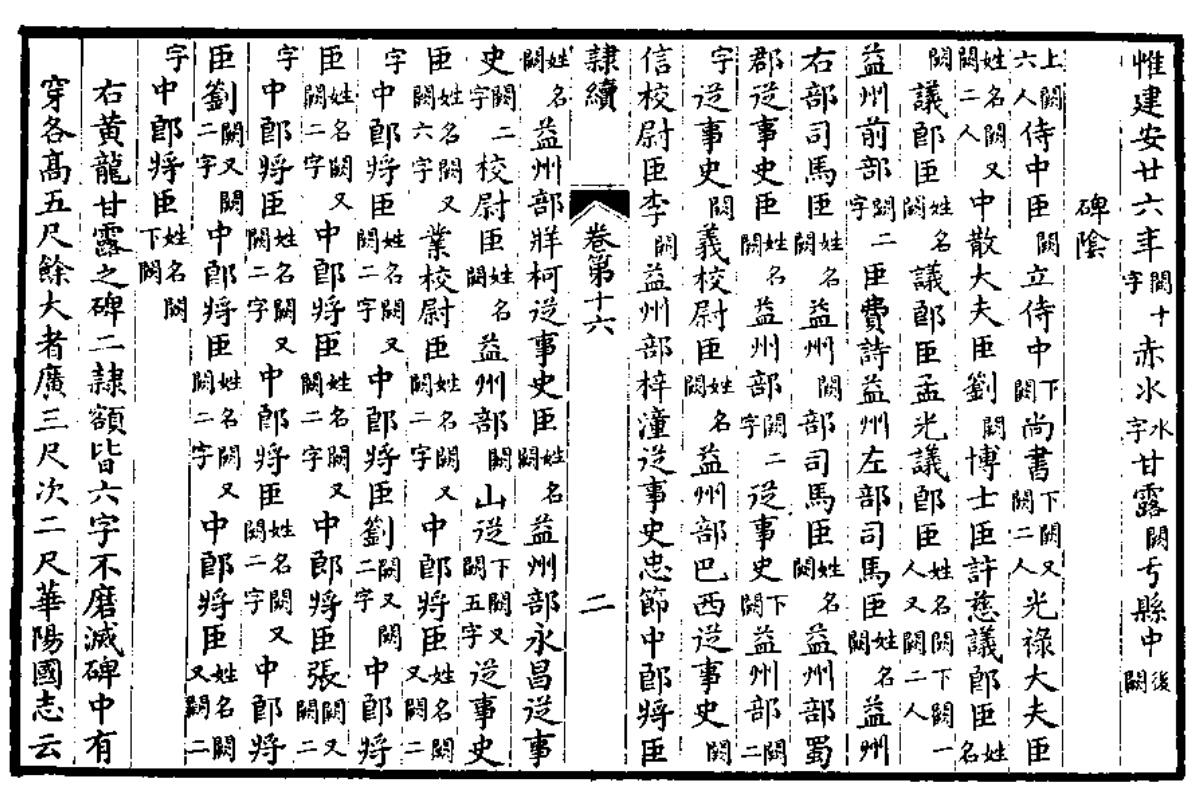 惟建安廿六年闕十字赤水水字甘露闕兮縣中後闕
碑陰
上闕六人侍中臣闕立侍中下闕尚書下闕又闕二人光祿大夫臣
姓名闕又闕二人中散大夫臣劉闕博士臣許慈議郎臣姓名
闕議郎臣姓名闕議郎臣孟光議郎臣姓名闕下闕一人又闕二人
益州前部闕二字臣費詩益州左部司馬臣姓名闕益州
右部司馬臣姓名闕益州闕部司馬臣姓名闕益州部蜀
郡從事史臣姓名闕益州部闕二字從事史下闕益州部闕二
字從事史闕義校尉臣姓名闕益州部巴西從事史闕
信校尉臣李闕益州部梓潼從事史忠節中郎將臣
隸續 卷第十六 二
姓名闕益州部牂柯從事史臣姓名闕益州部永昌從事
史闕二字校尉臣姓名闕益州部闕山從下闕又闕五字從事史
臣姓名闕又闕六字業校尉臣姓名闕又闕二字中郎將臣姓名闕又闕二
字中郎將臣姓名闕又闕二字中郎將臣劉闕又闕二字中郎將
臣姓名闕又闕二字中郎將臣姓名闕又闕二字中郎將臣張闕又闕二
字中郎將臣姓名闕又闕二字中郎將臣姓名闕又闕二字中郎將
臣劉闕又闕二字中郎將臣姓名闕又闕二字中郎將臣姓名闕又闕二
字中郎將臣姓名闕下闕
右黃龍甘露之碑二隸額皆六字不磨滅碑中有
穿各高五尺餘大者廣三尺次二尺華陽國志云